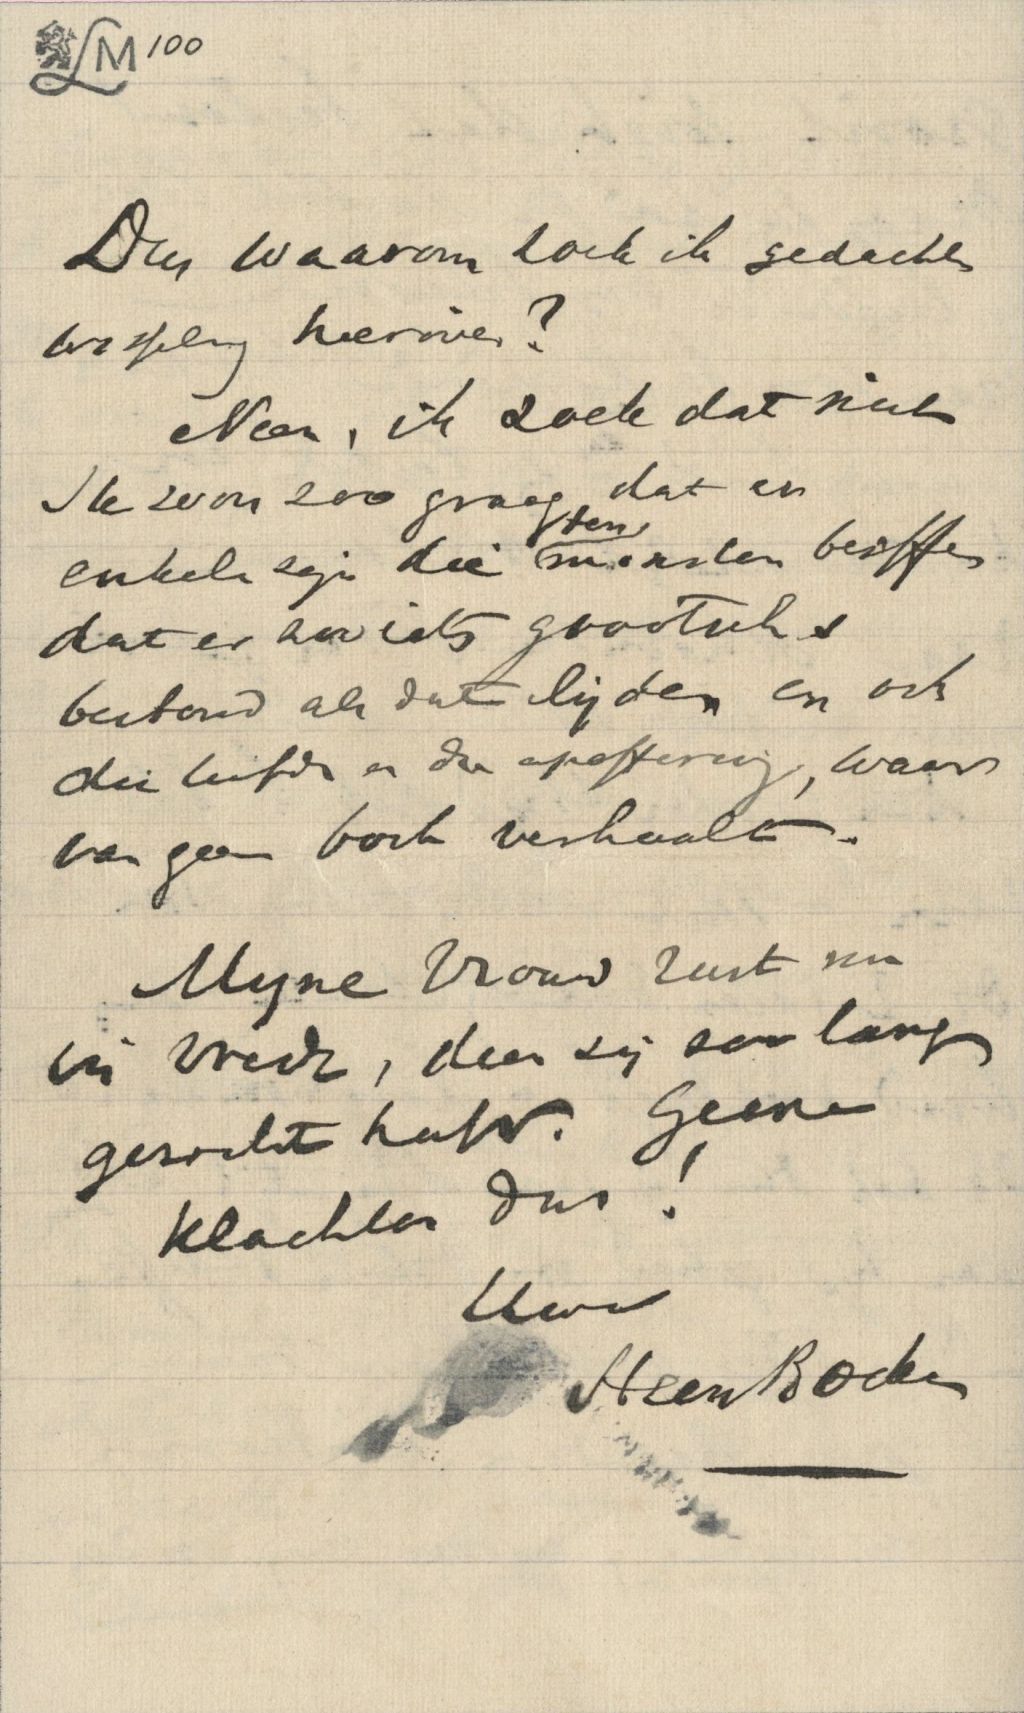 LM 100
Dus waarom zoek ik gedachten
wisseling hierover?
Neen, ik zoek dat niet
Ik wou zoo graag dat er
enkele zijn die ten minsten beseffen
dat er zoo iets grootsch
bestond als dat lijden en ook
die liefde en die opoffering, waar
van geen boek verhaalt.
Myne Vrouw rust nu
in vrede, dien zij zoo lang
gezocht heeft. Geene
klachten dus!
Uwe